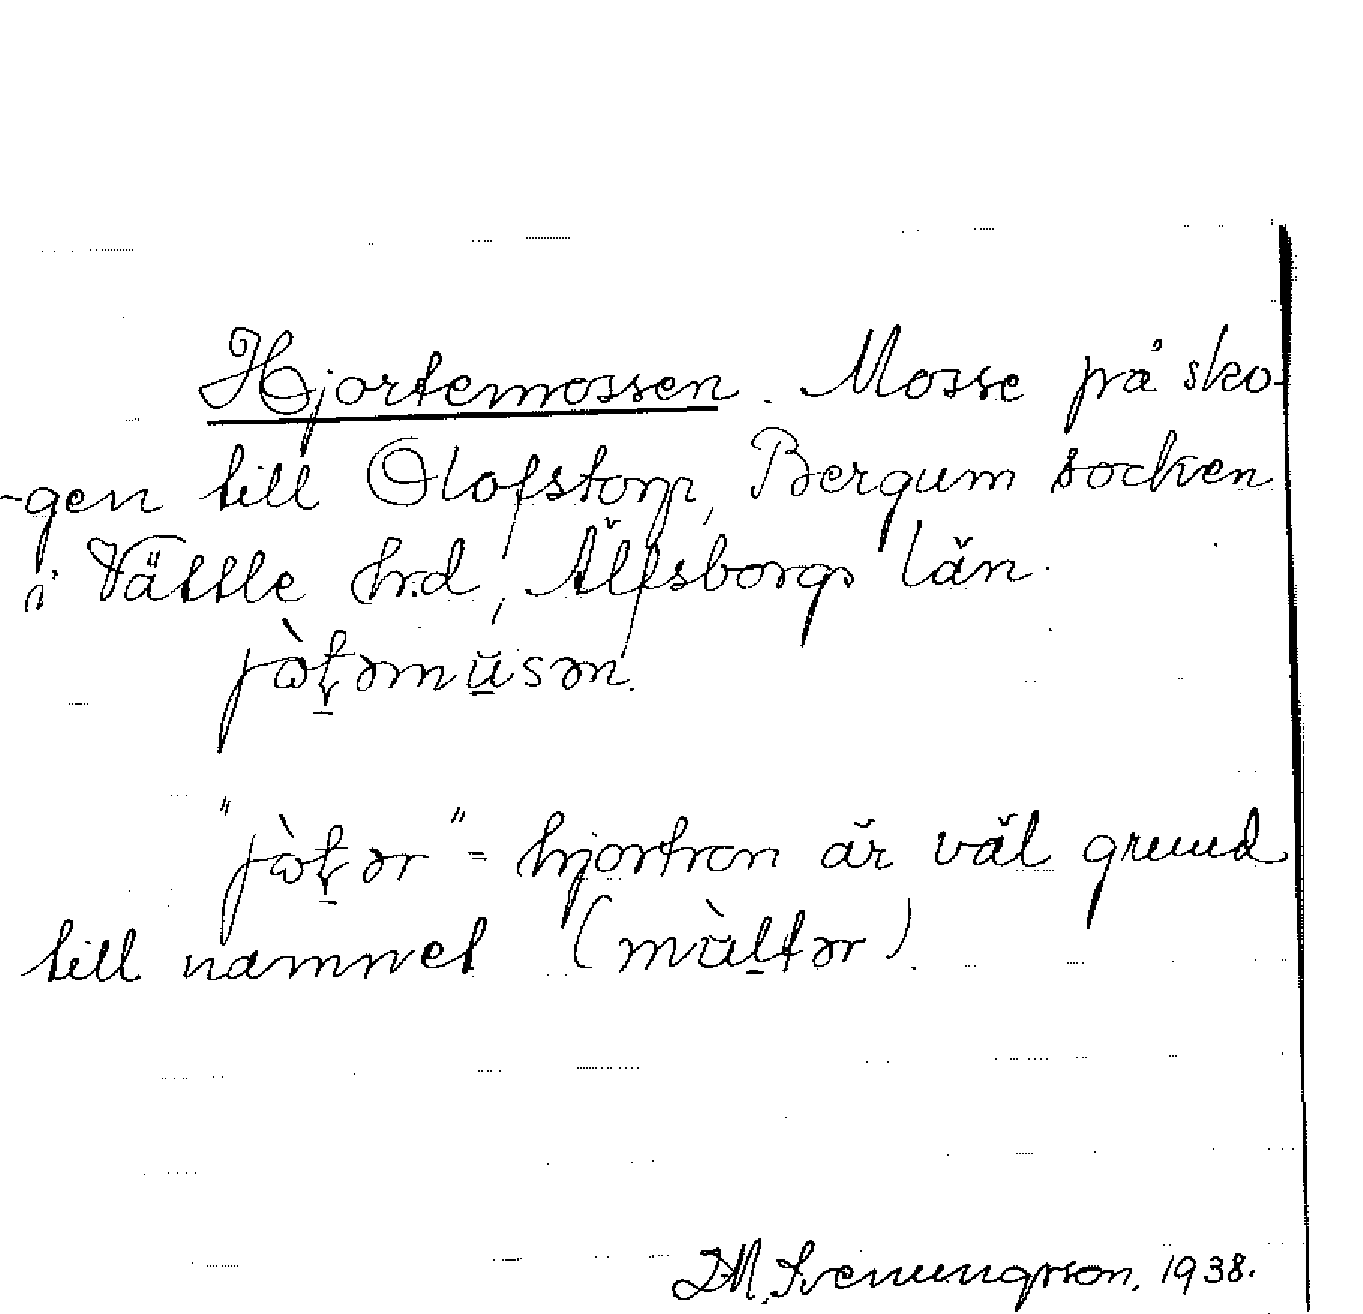 Hjortemossen. Mosse på sko-
-gen till Olofstorp, Bergum socken
i Vättle hrd, Älfsborgs län.
jòt̠əmŭ̠sən.
"jòt̠ər" = hjortron är väl grund
till namnet (màl̠tər).
Svenungsson, 1938.